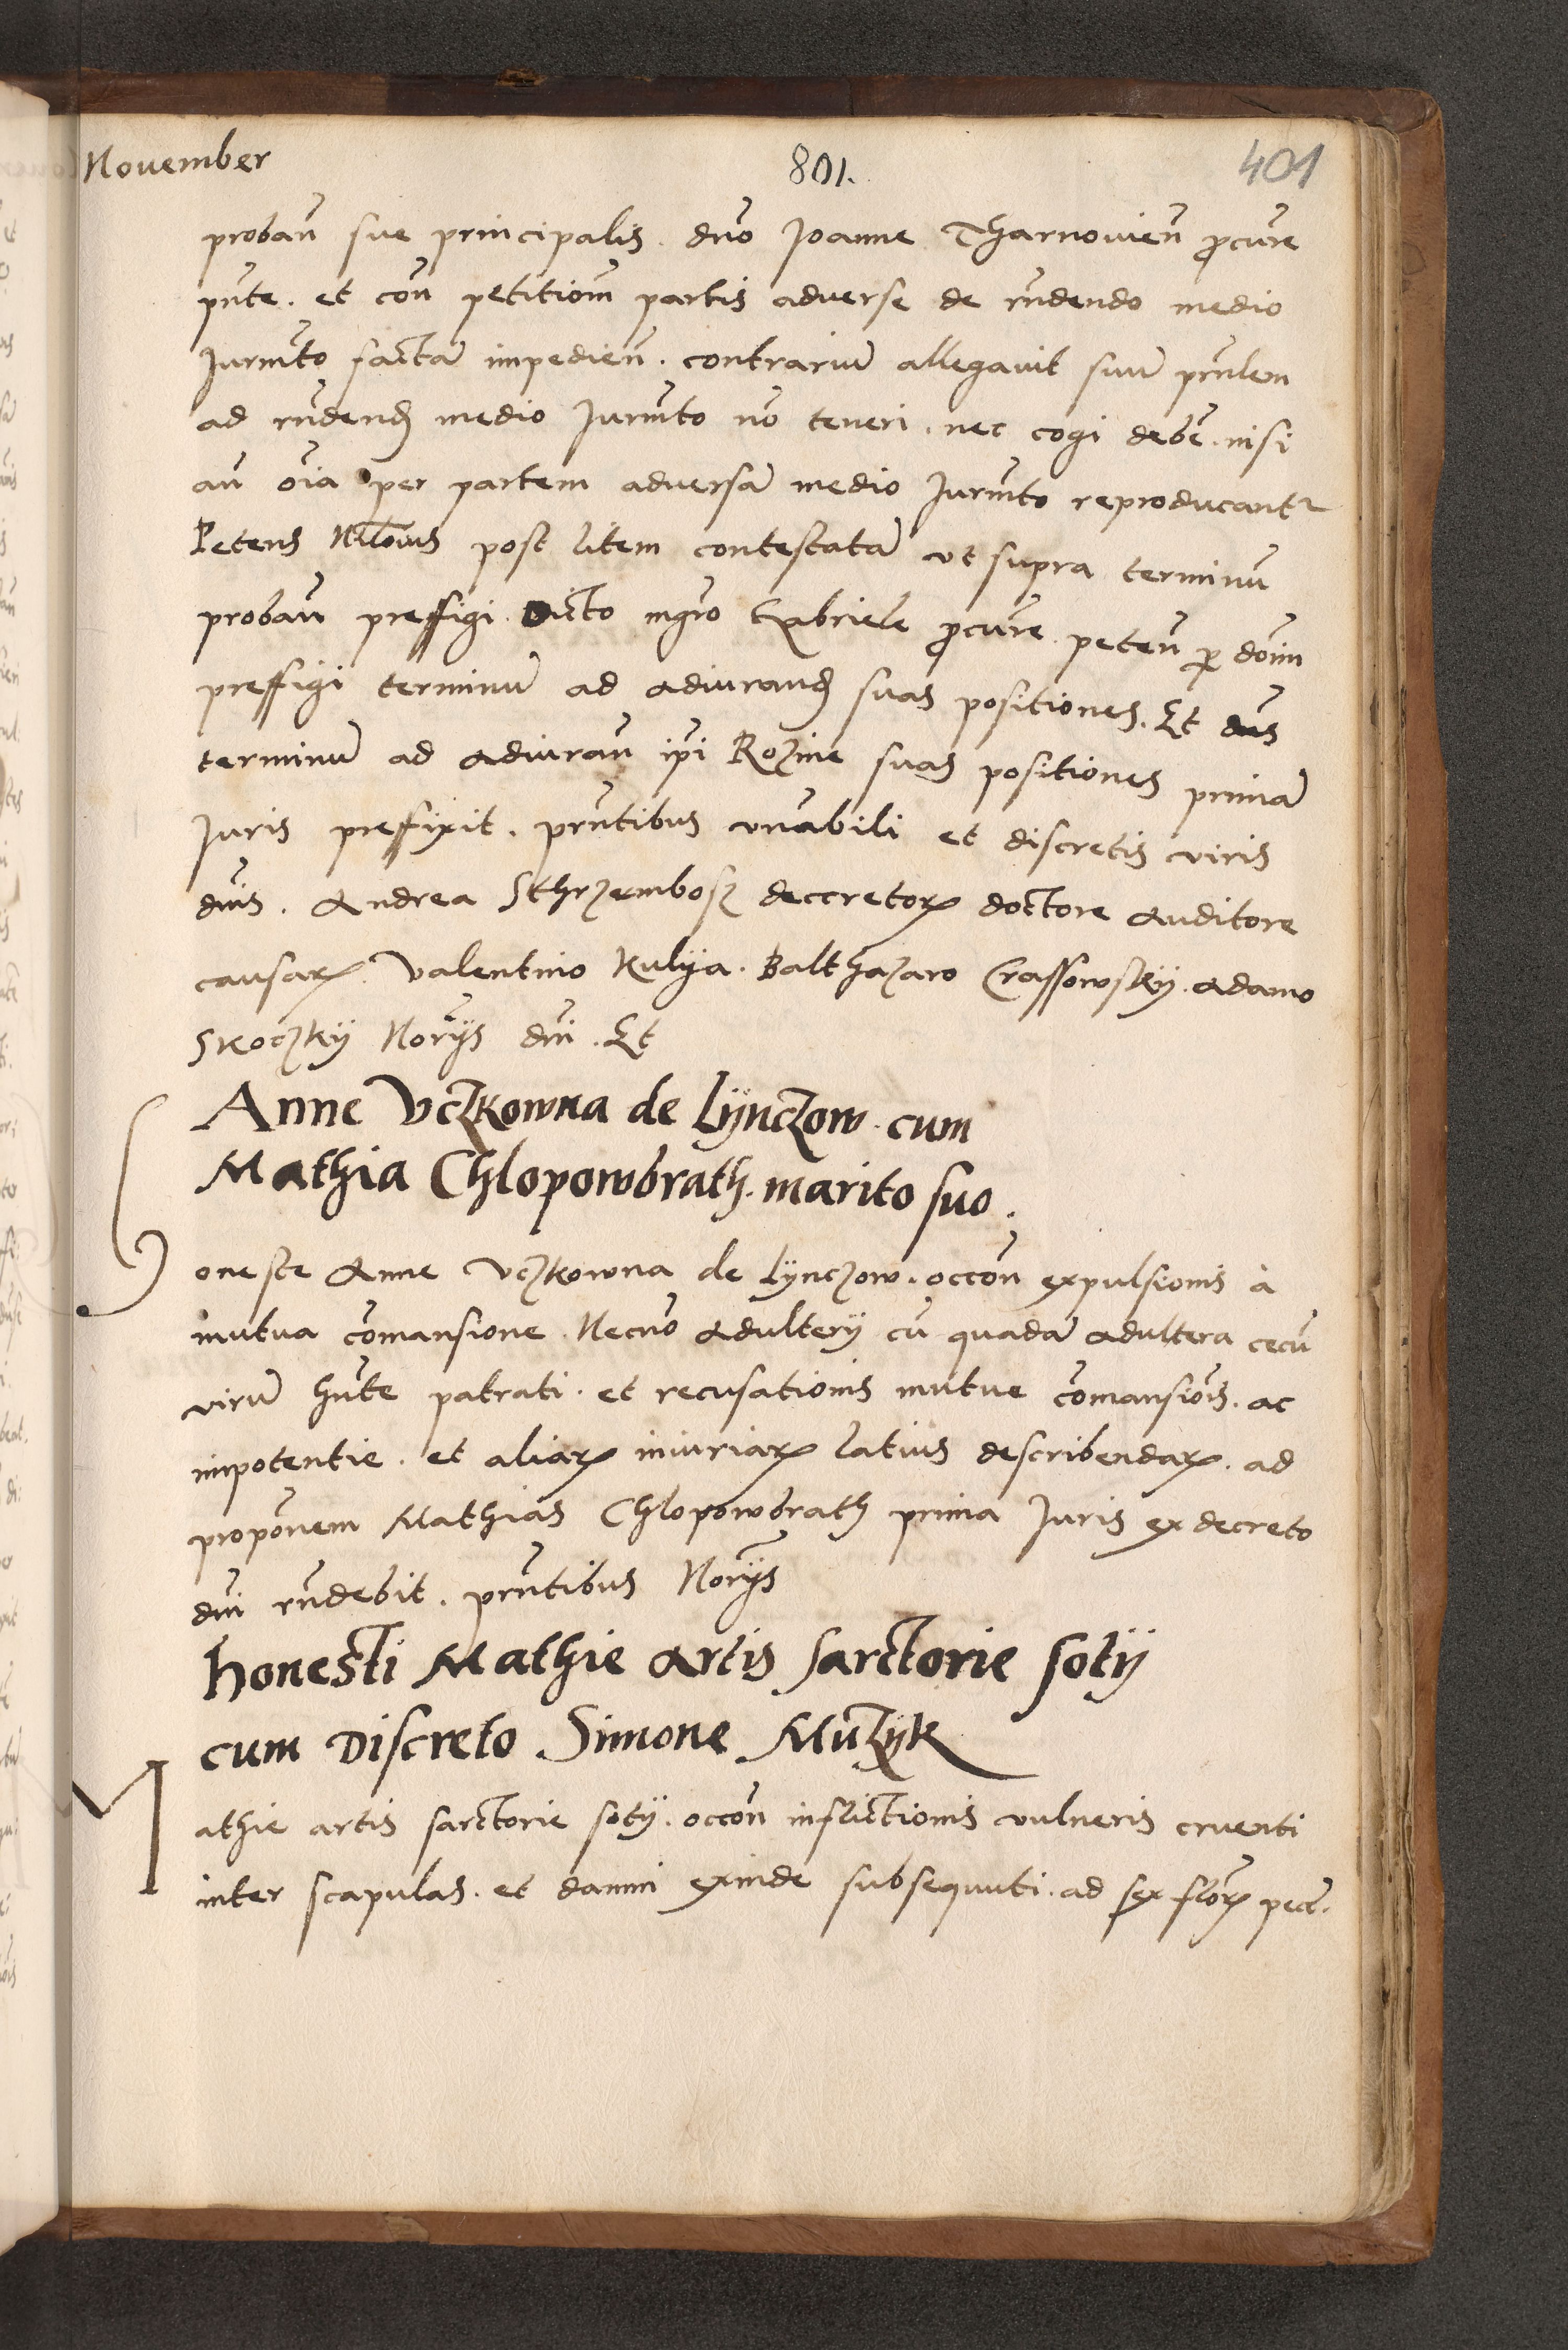 November 801. 401
proban̄ sue principalis. dn̄o Joanne Tharnovien̄ p̄cure
pn̄te. et con̄ petitiom̄ partis adverse de rn̄dendo medio
Jurm̄to factā impedien̄. contrariū allegavit suū prn̄lem
ad rn̄dend medio Jurm̄to nō teneri. nec cogi debē. nisi
an̄ oīa per partem adversā medio Jurm̄to reproducant
Petens Nilōius post litem contestatā ut supra terminū
proban̄ preffigi. Dicto mgr̄o Gabriele p̄cure peten̄ p doīm
preffigi terminū ad adiurand suas positiones. Et dn̄s
terminū ad adiuran̄ ip̄i Rozine suas positiones primā
Juris preffixit. prn̄tibus vn̄abili et discretis viris
dn̄is. Andrea Sthrzembosz decretoꝝ doctore auditore
causaꝝ. Valentino Kulija. Balthazaro Crassowskij. adamo
Skoczkij Norīis dn̄i. Et
Anne Vczkowna de Lijnczow. cum
Mathia Chlopowbrath. marito suo.
H
oneste Anne Vczkowna de Lijnczow. occōn expulsionis à
mutua cōmansione. Necnō adulterij cū quadā adultera cecū
virū hn̄te patrati. et recusationis mutue cōmansiōis. ac
impotentie. et aliaꝝ iniuriaꝝ latius describendaꝝ. ad
propōnem Mathias Chlopowbrath prima Juris ex decreto
dn̄i rn̄debit. prn̄tibus Norīis
honesti Mathie Artis sarctorie sotij
cum Discreto Simone Muzijk
M
athie artis sarctorie sotij. occōn inflictionis vulneris cruenti
inter scapulas. et damni exinde subsequuti. ad sex florꝝ pecc̄.